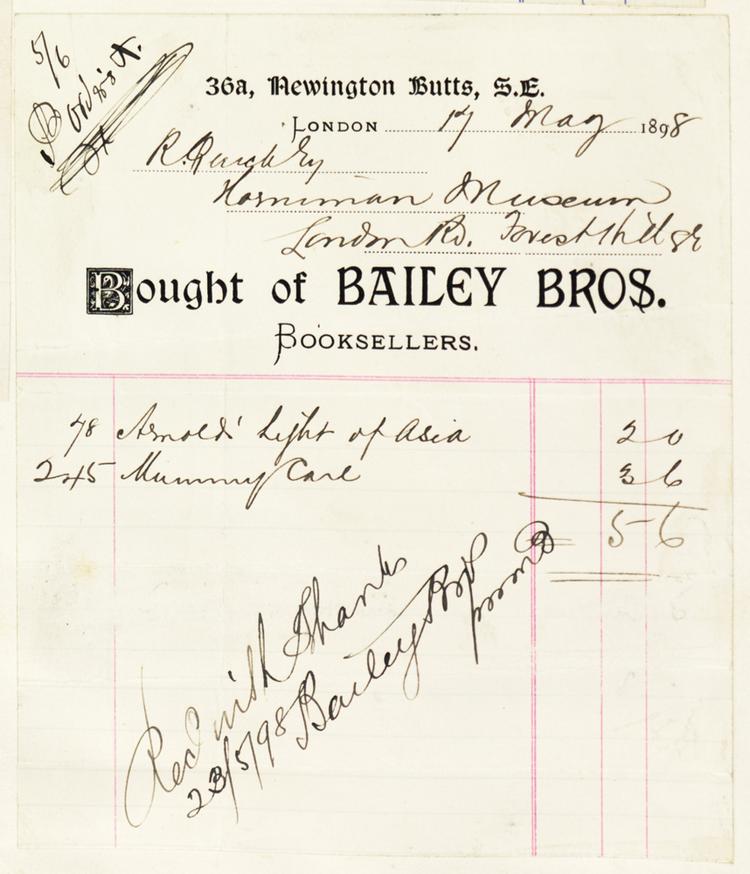 5/6
36a, Newington Butts, S.E.
LONDON 17 May 1898
R. Quick Esq
Horniman Museum
London Rd. Forest Hill SE
Bought of BAILEY BROS.
BOOKSELLERS.
78 Arnolds' Light of Asia 2 0
245 Mummy Case 3 6
5 6
Recd with Thanks
23/5/98 Bailey Bros